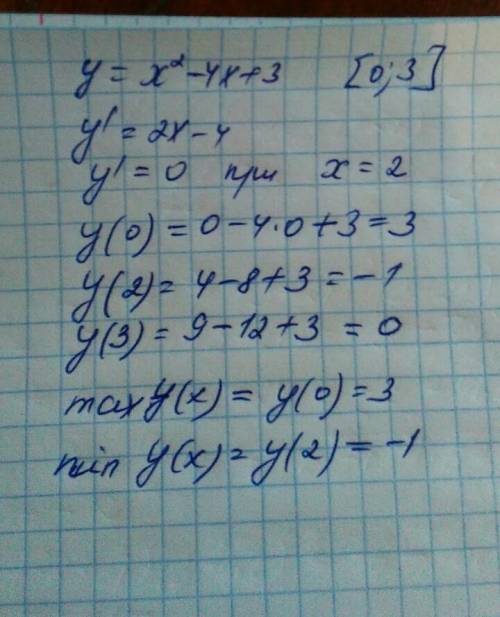 y = x² - 4x + 3 [0; 3]
y' = 2x - 4
y' = 0 при x = 2
y(0) = 0 - 4·0 + 3 = 3
y(2) = 4 - 8 + 3 = -1
y(3) = 9 - 12 + 3 = 0
max y(x) = y(0) = 3
min y(x) = y(2) = -1